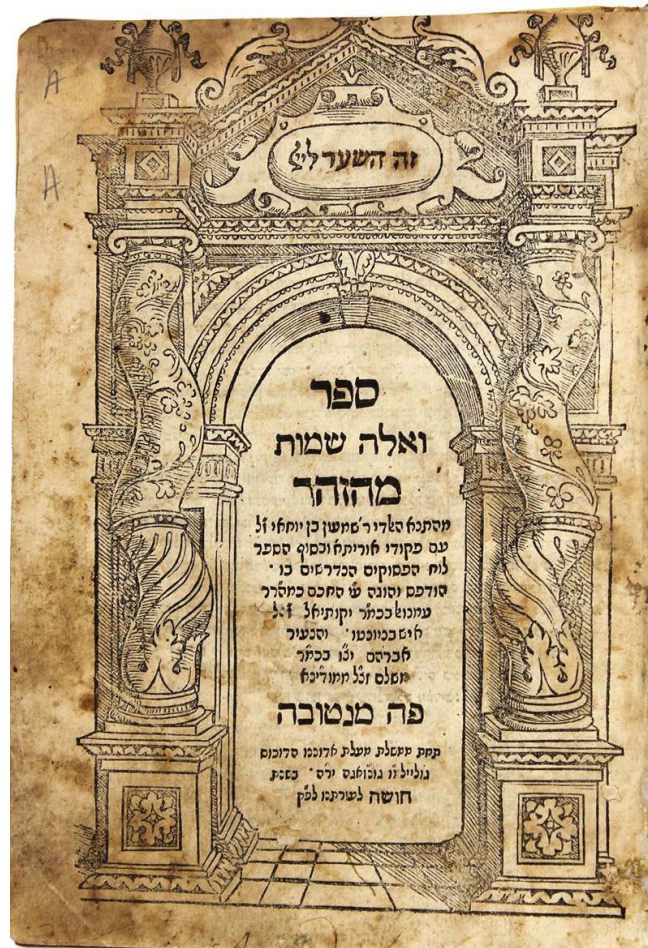 A
A
זה השער ליי
ספר
ואלה שמות
מהזהר
מהתנא האלדי ר' שמעון בן יוחאי ז"ל
עם פקודי אוריתא ובסוף הספר
לוח הפסוקים הנדרשים בו ·
הודפס והוגה ע"י החכם כמהר"ר
עמנואל בכמ"ר יקותיאל ז"ל
איש בניוינטו · והצעיר
אברהם יצ"ו בכמ"ר
משלם זצ"ל ממודינא
פה מנטובה
תחת ממשלת מעלת אדוננו הדוכוס
גולייל"ו גונזאגה יר"ה · בשנת
חושה לעזרתנו לפ"ק